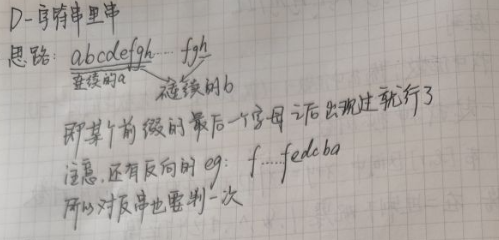 D-字符串里串
思路: abcdefgh.... fgh
连续的a 不连续的b
即某个前缀的最后一个字母之后出现过就行了
注意,还有反向的 eg: f....fedcba
所以对反串也要判一次